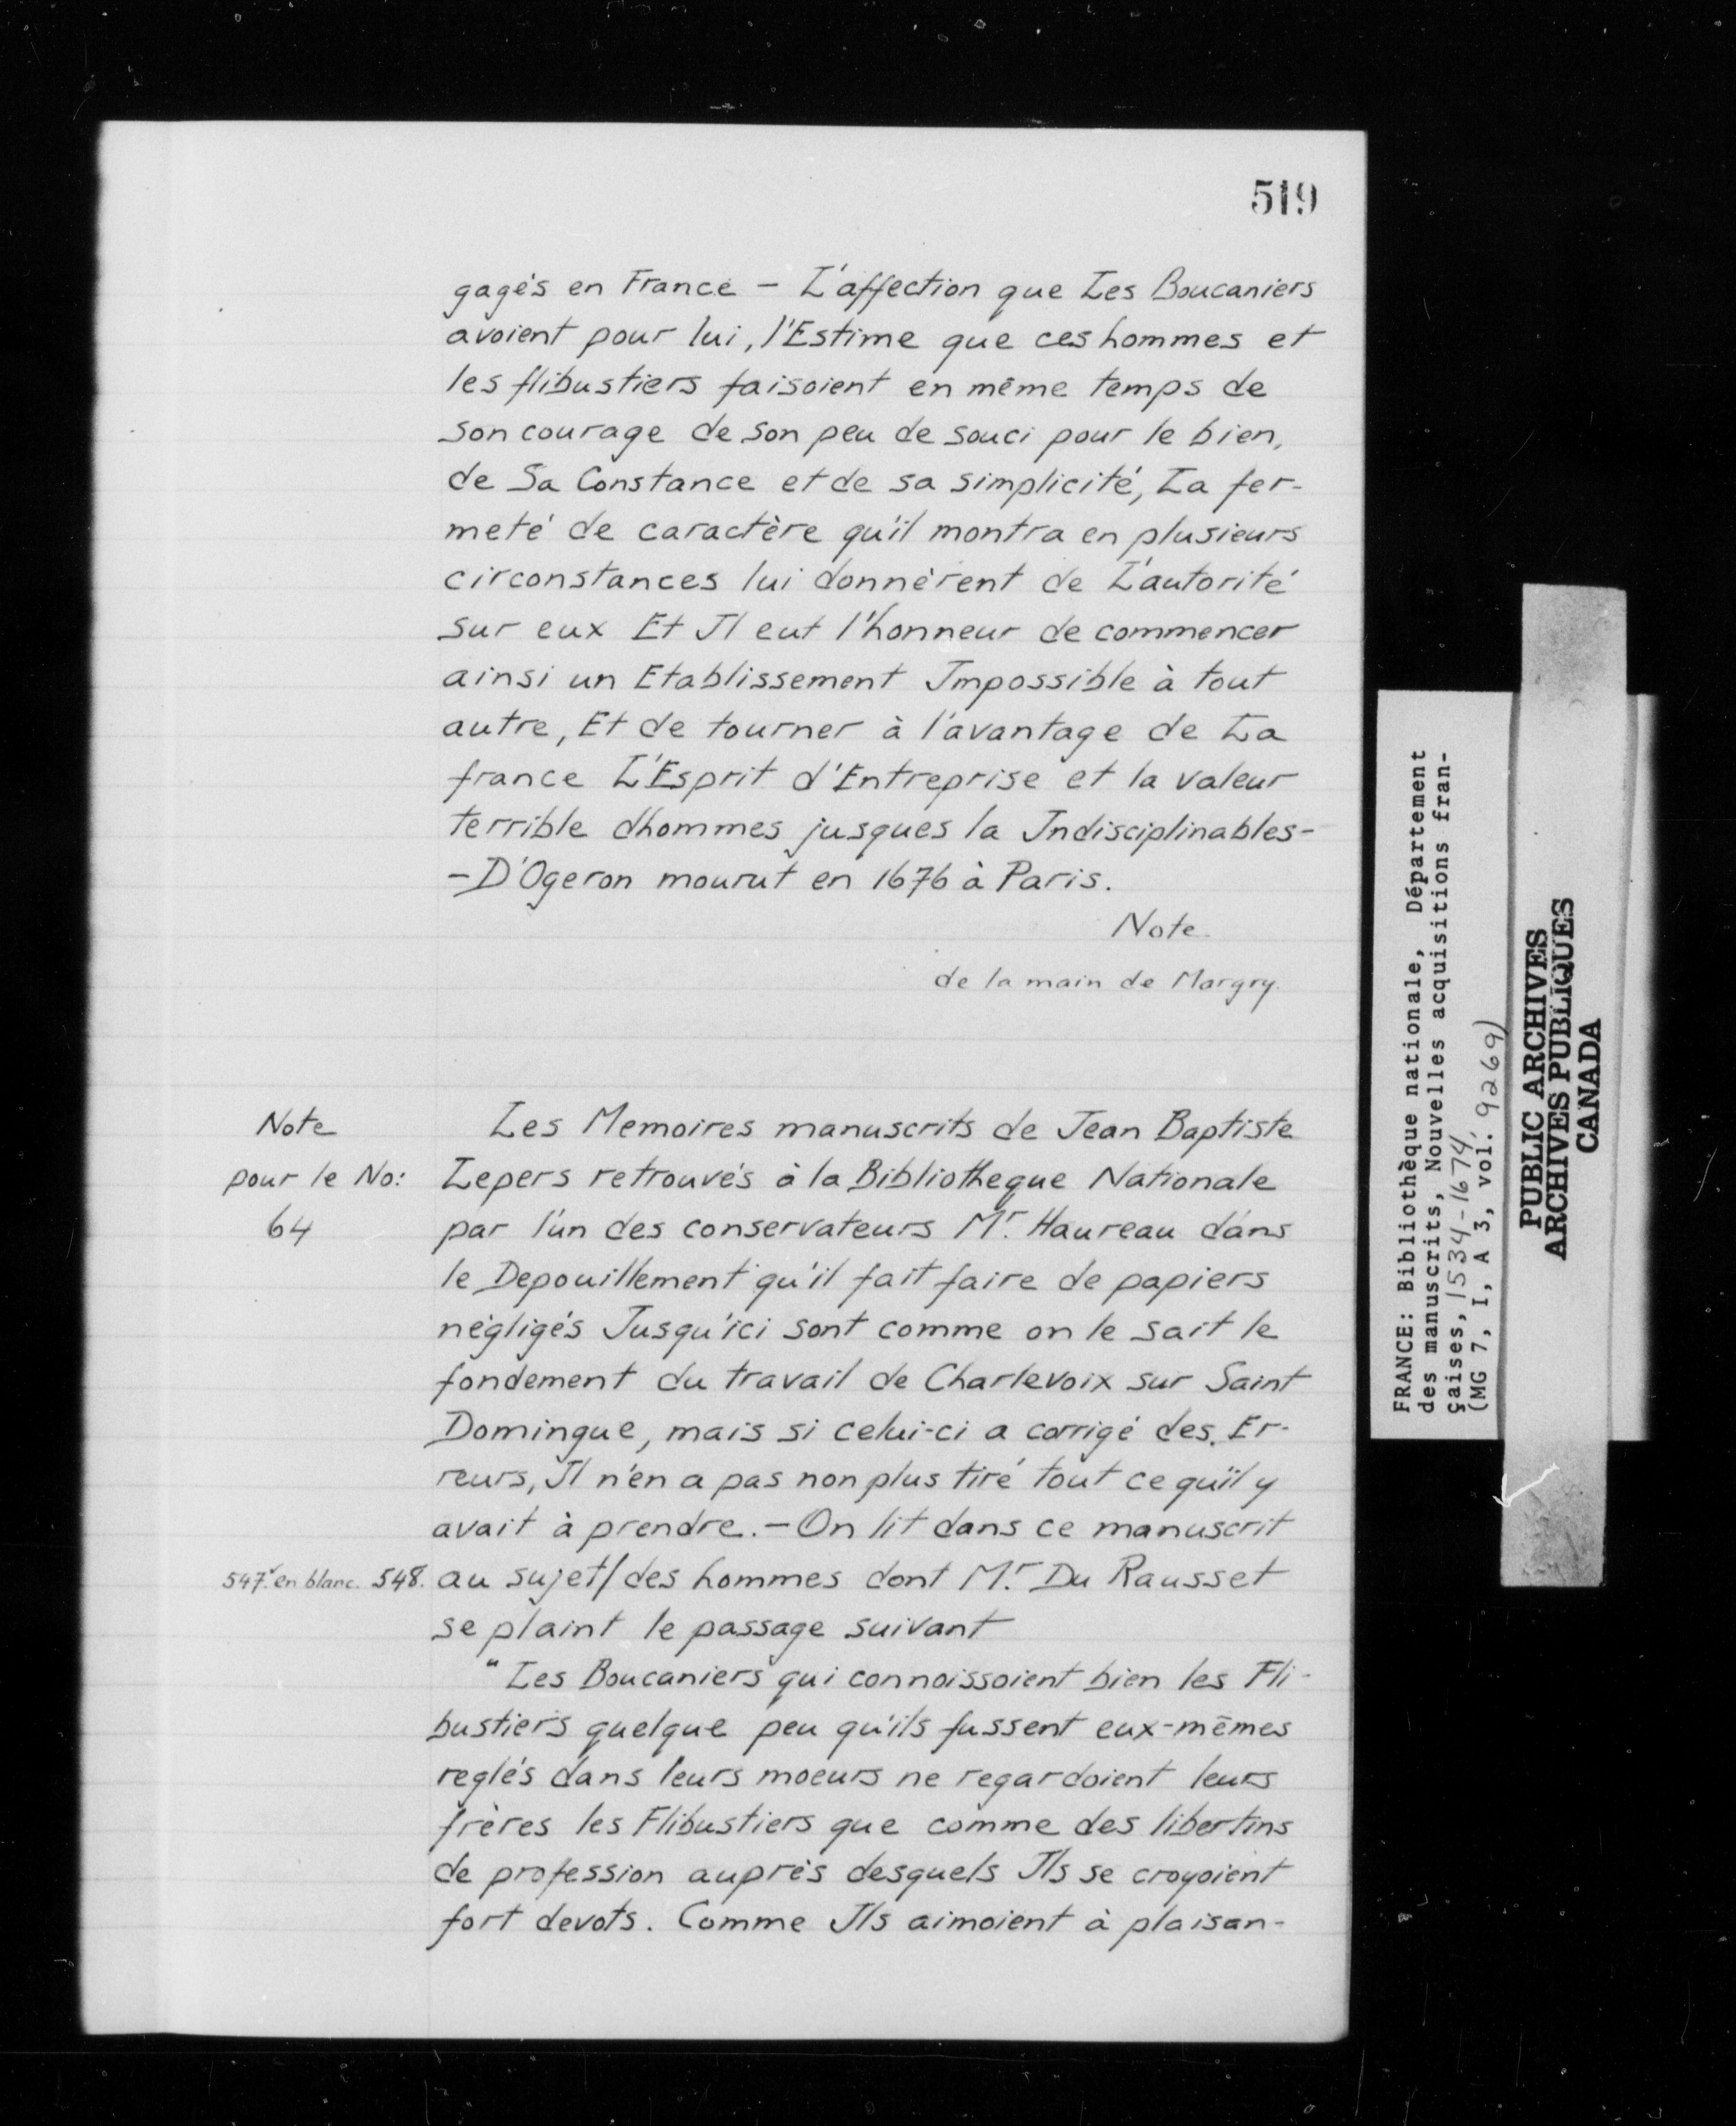 519
gagés en France — L'affection que Les Boucaniers
avoient pour lui, l'Estime que ces hommes et
les flibustiers faisoient en même temps de
son courage de son peu de souci pour le bien,
de Sa Constance et de sa simplicité, La fer-
meté de caractère qu'il montra en plusieurs
circonstances lui donnèrent de L'autorité
sur eux Et Il eut l'honneur de commencer
ainsi un Etablissement Impossible à tout
autre, Et de tourner à l'avantage de La
france L'Esprit d'Entreprise et la valeur
terrible d'hommes jusques la Indisciplinables-
-D'Ogeron mourut en 1676 à Paris.
Note
de la main de Margry.
Note
pour le No:
64
Les Memoires manuscrits de Jean Baptiste
Lepers retrouvés à la Bibliotheque Nationale
par l'un des conservateurs Mr. Haureau dans
le Depouillement qu'il fait faire de papiers
négligés Jusqu'ici sont comme on le sait le
fondement du travail de Charlevoix sur Saint
Domingue, mais si celui-ci a corrigé des Er-
reurs, Il n'en a pas non plus tiré tout ce qu'il y
avait à prendre. — On lit dans ce manuscrit
547v en blanc. 548. au sujet/des hommes dont Mr. Du Rausset
se plaint le passage suivant
"Les Boucaniers qui connoissoient bien les Fli-
bustiers quelque peu qu'ils fussent eux-mêmes
reglés dans leurs moeurs ne regardoient leurs
frères les Flibustiers que comme des libertins
de profession auprès desquels Ils se croyoient
fort devots. Comme Ils aimoient à plaisan-
FRANCE: Bibliothèque nationale, Département
des manuscrits, Nouvelles acquisitions fran-
çaises, 1534-1674
(MG 7, I, A 3, vol. 9269)
PUBLIC ARCHIVES
ARCHIVES PUBLIQUES
CANADA